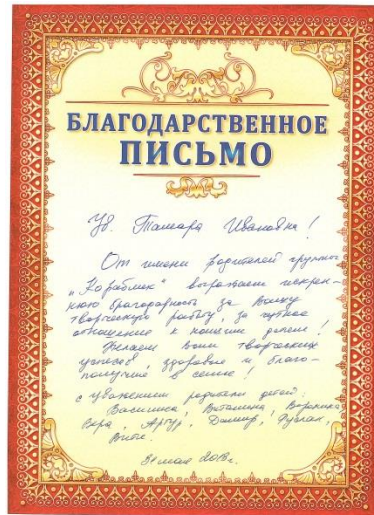 БЛАГОДАРСТВЕННОЕ
ПИСЬМО
Ув. Тамара Ивановна!
От имени родителей группы
"Кораблик" выражаем искрен-
нюю благодарность за Вашу
творческую работу, за чуткое
отношение к нашим детям!
Желаем Вам творческих
успехов, здоровья и благо-
получия в семье!
с уважением родители детей:
Василиса, Виталина, Вероника
Вера, Артур, Дамир,
31 мая 2013г.